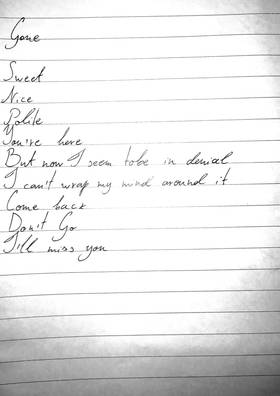 Gone
Sweet
Nice
Polite
You're here
But now I seem to be in denial
I can't wrap my mind around it
Come back
Don't Go
I'll miss you